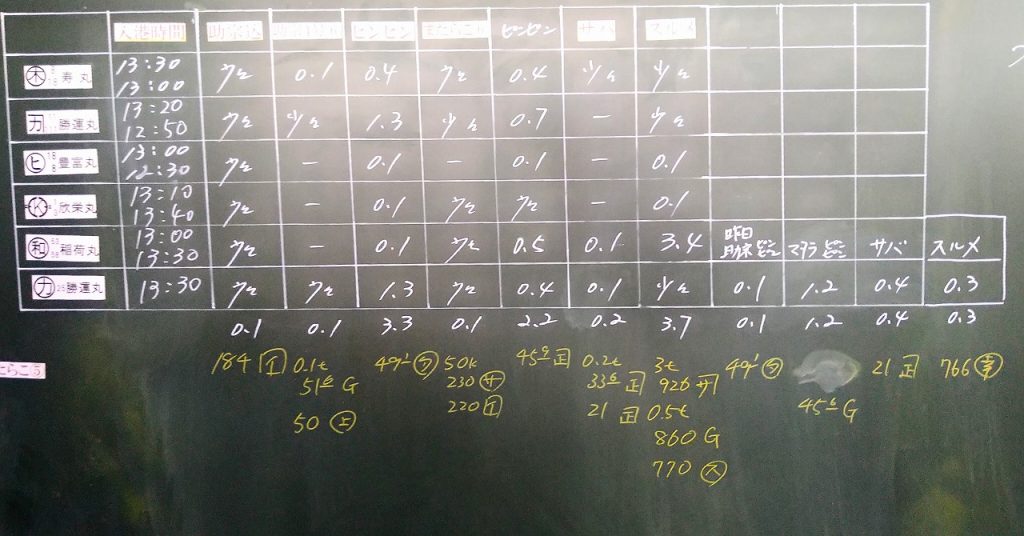 入港時間 助宗込 ピンピン ピンピン サバ スルメ
木 寿丸 13:30 13:00 少々 0.1 0.4 少々 0.4 少々 少々
カ 勝運丸 13:20 12:50 少々 少々 1.3 少々 0.7 — 少々
ヒ 豊富丸 13:00 12:30 少々 — 0.1 — 0.1 — 0.1
欣栄丸 13:10 13:40 少々 — 0.1 少々 少々 — 0.1
和 稲荷丸 13:00 13:30 少々 — 0.1 少々 0.5 0.1 3.4 マダラ サバ スルメ
カ 勝運丸 13:30 少々 少々 1.3 少々 0.4 0.1 少々 0.1 1.2 0.4 0.3
0.1 0.1 3.3 0.1 2.2 0.2 3.7 0.1 1.2 0.4 0.3
184 0.1t 49 50k 45 正 0.2t 3t 49 21 正 766
51 G 230 サ 33 正 926 サ 45 G
50 上 220 21 正 0.5t
860 G
770 ス
たらこ⑤